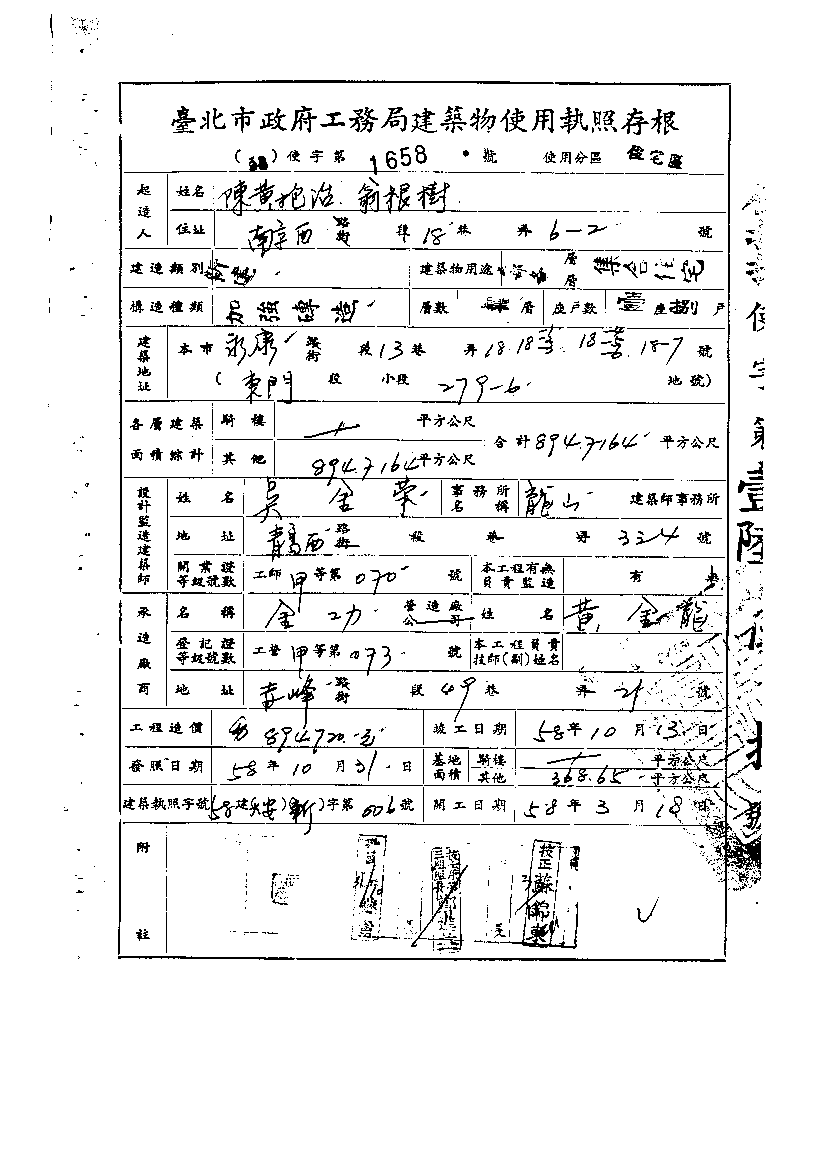 臺北市政府工務局建築物使用執照存根
(58) 使字第 1658 號 使用分區 住宅區
起造人 姓名 陳黃抱治 翁根樹
住址 南京西 路街 段 18 巷 弄 6-2 號
建造類別 新建 建築物用途 層層 集合住宅
構造種類 加強磚造 層數 層 座戶數 壹座捌戶
建築地址 本市 永康 路街 段 13 巷 弄 18. 18 18 18-7 號
(東門 段 小段 279-6 地號)
各層建築面積綜計 騎樓 平方公尺 合計 894.7164 平方公尺
其他 894.7164 平方公尺
設計監造建築師 姓名 吳金榮 事務所名稱 龍山 建築師事務所
地址 西 路街 段 巷 弄 334 號
開業證等級號數 工師 甲 等第 070 號 本工程有無負責監造 有 無
承造廠商 名稱 金功 營造廠公司 姓名 黃金龍
登記證等級號數 工營 甲 等第 073 號 本工程負責技師(副)姓名
地址 赤峰 路街 段 49 巷 弄 21 號
工程造價 894720.元 竣工日期 58 年 10 月 13 日
發照日期 58 年 10 月 31 日 基地面積 騎樓 平方公尺
其他 368.65 平方公尺
建築執照字號 58 建(大安)(新)字第 006 號 開工日期 58 年 3 月 18 日
附註
校正 蘇錦
使字第壹陸